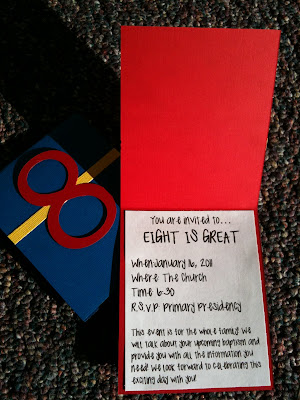 8
You are invited to...
EIGHT IS GREAT
When: January 16, 2011
Where: The Church
Time: 6:30
R.S.V.P. Primary Presidency
This event is for the whole family! We
will talk about your upcoming baptism and
provide you with all the information you
need! We look forward to celebrating this
exciting day with you!